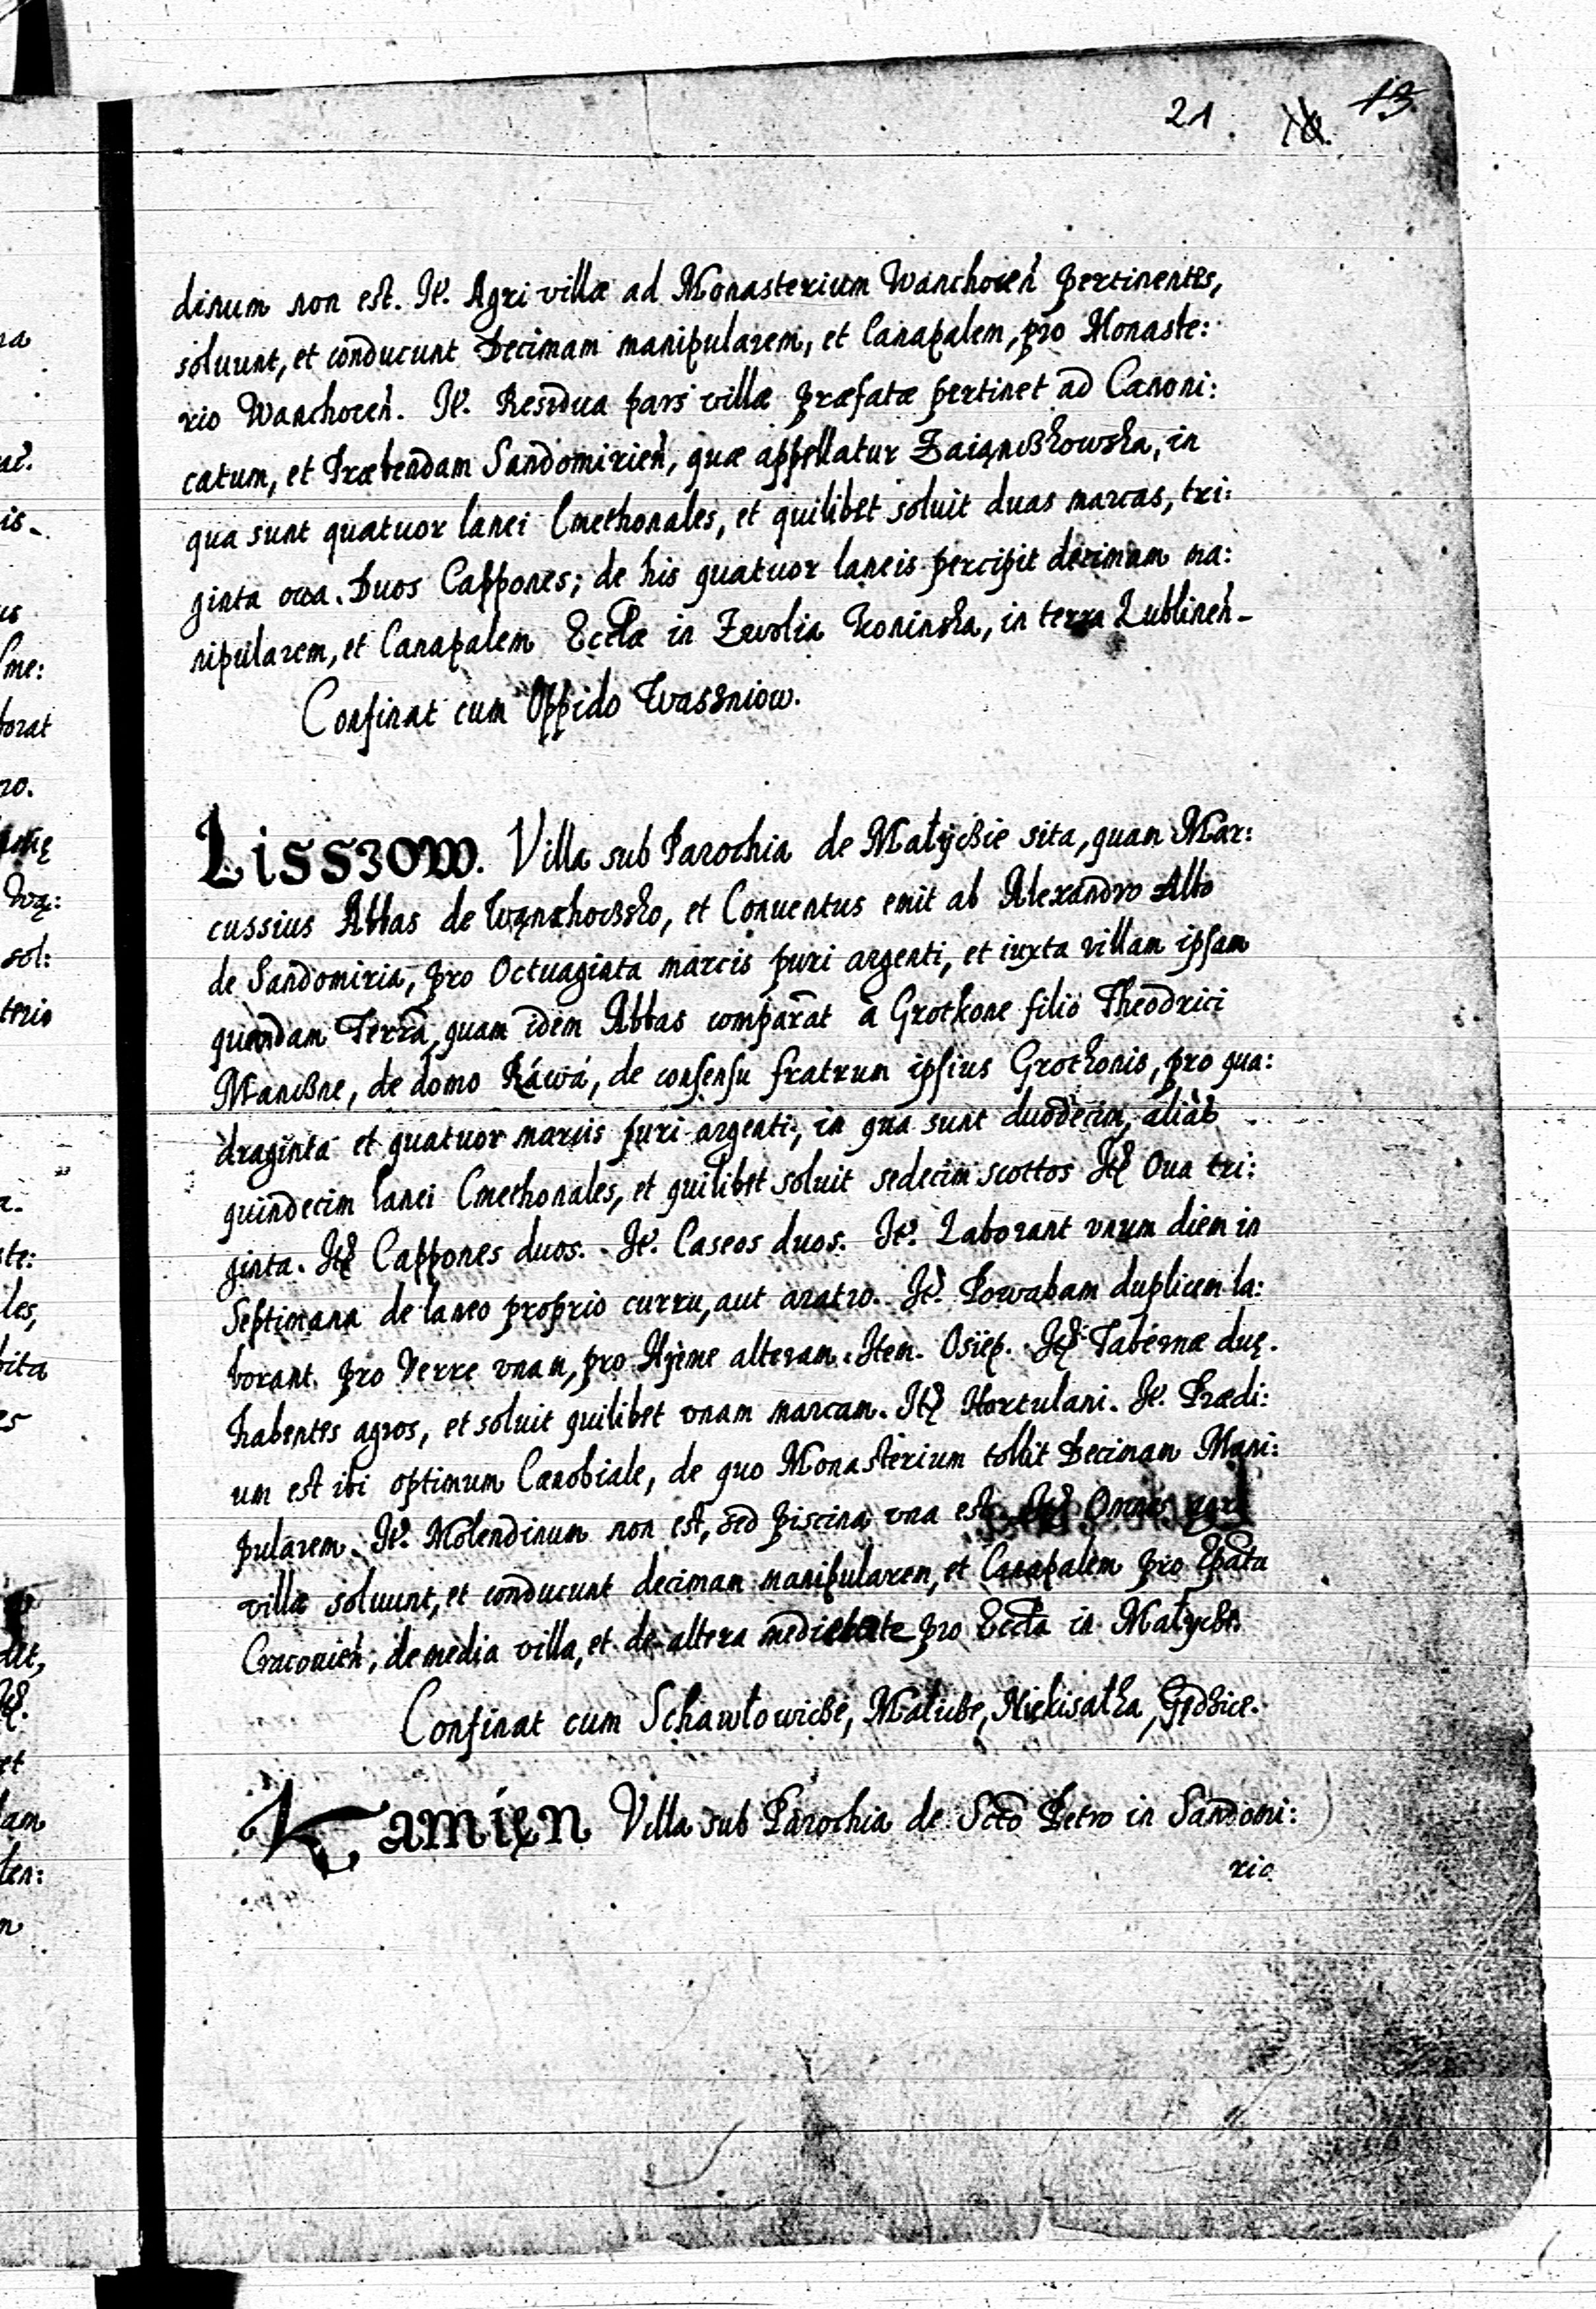 21. 13
dinum non est. It. Agri villæ ad Monasterium Wanchocen̄ pertinentes,
soluunt, et conducunt Decimam manipularem, et Canapalem, pro Monaste:
rio Wanchocen̄. It. Residua pars villæ præfatæ pertinet ad Canoni:
catum, et Præbendam Sandomirien̄, quæ appellatur Zaiąnczkowska, in
qua sunt quatuor lanei Cmethonales, et quilibet soluit duas marcas, tri:
ginta oua. Duos Cappones; de his quatuor laneis percipit decimam ma:
nipularem, et Canapalem Eccl̄æ in Zwolia Koninska, in terra Lublinen̄
Confinat cum Oppido Wassniow.
Lisszow. Villa sub Parochia de Malyczie sita, quam Mar:
cussius Abbas de Wąnchoczko, et Conuentus emit ab Alexandro Albo
de Sandomiria, pro Octuaginta marcis puri argenti, et iuxta villam ipsam
quandam Terrā, quam idem Abbas comparāt à Grotkone filio Theodrici
Manczne, de domo Ráwá, de consensu fratrum ipsius Grothonis, pro qua:
draginta et quatuor marcis puri argenti, in qua sunt duodecim, aliàs
quindecim lanei Cmethonales, et quilibet soluit sedecim scottos Itē Oua tri:
ginta. Itē Cappones duos. It. Caseos duos. It. Laborant vnum diem in
Septimana de laneo proprio curru, aut aratro. It. Powabam duplicem la:
borant. pro Verre vnam, pro Hyeme alteram. Item. Osiép. Itē Tabernæ duę.
habentes agros, et soluit quilibet vnam marcam. Itē Hortulani. It. Prædi:
um est ibi optimum Cænobiale, de quo Monasterium tollit Decimam Mani:
pularem. It. Molendinum non est, sed piscina vna est. Itē Omnes agri
villæ soluunt, et conducunt decimam manipularem, et Canapalem pro Ep̄atu
Cracouien̄, de media villa, et de altera medietate pro Eccl̄a in Malycze.
Confinat cum Schawłowicze, Malicze, Niekisałka, Gędzice.
Kamięn Villa sub Parochia de Sct̄o Petro in Sandomi:
ria